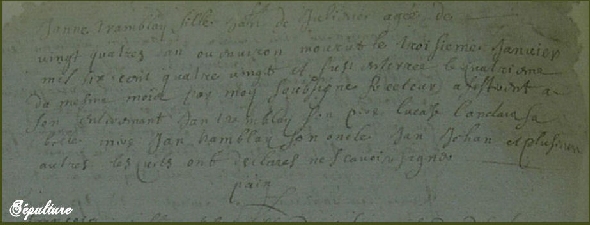 Janne tramblay fille Jan de Julienne agee de
vingt quatres an ou environ mourut le troisieme Janvier
mil six cent quatre vingt et fust enterree le quatrieme
du mesme mois par moy soubsigne Recteur assistoint a
son enterremant Jan tramblay son pere
belle mere Jan tramblay son oncle Jan Johan et plusieurs
autres lesquels ont declares ne scavoir signer
Sépulture